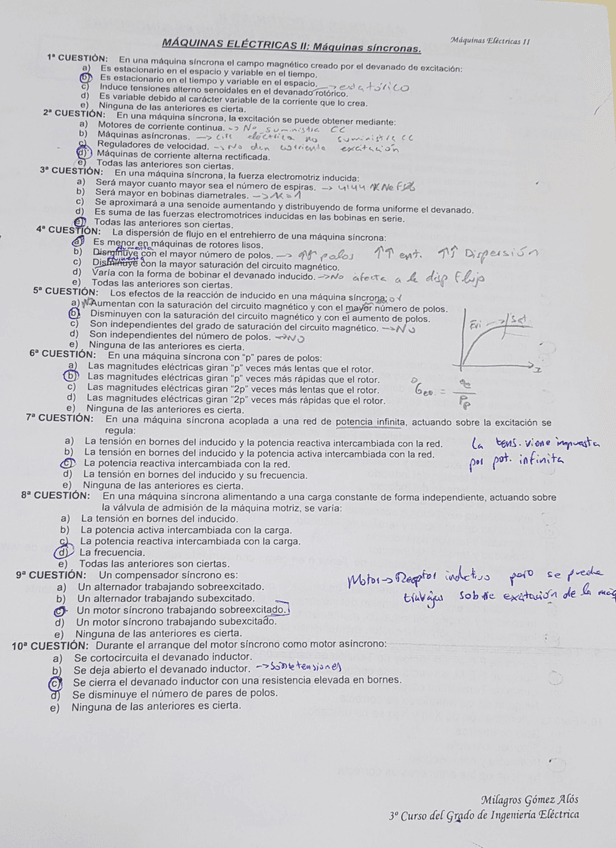 Máquinas Eléctricas II
MÁQUINAS ELÉCTRICAS II: Máquinas síncronas.
1ª CUESTIÓN: En una máquina síncrona el campo magnético creado por el devanado de excitación:
a) Es estacionario en el espacio y variable en el tiempo.
b) Es estacionario en el tiempo y variable en el espacio.
c) Induce tensiones alterno senoidales en el devanado rotórico. → estatórico
d) Es variable debido al carácter variable de la corriente que lo crea.
e) Ninguna de las anteriores es cierta.
2ª CUESTIÓN: En una máquina síncrona, la excitación se puede obtener mediante:
a) Motores de corriente continua. → No suministra CC
b) Máquinas asíncronas. → eléctrica no suministra CC
c) Reguladores de velocidad. → No dan corriente excitación
d) Máquinas de corriente alterna rectificada.
e) Todas las anteriores son ciertas.
3ª CUESTIÓN: En una máquina síncrona, la fuerza electromotriz inducida:
a) Será mayor cuanto mayor sea el número de espiras. → 4'44
b) Será mayor en bobinas diametrales. → K=1
c) Se aproximará a una senoide aumentando y distribuyendo de forma uniforme el devanado.
d) Es suma de las fuerzas electromotrices inducidas en las bobinas en serie.
e) Todas las anteriores son ciertas.
4ª CUESTIÓN: La dispersión de flujo en el entrehierro de una máquina síncrona:
a) Es menor en máquinas de rotores lisos.
b) Disminuye con el mayor número de polos. → ↑↑ polos ↑↑ ent. ↑↑ Dispersión
c) Disminuye con la mayor saturación del circuito magnético.
d) Varía con la forma de bobinar el devanado inducido. → No afecta a la disp flujo
e) Todas las anteriores son ciertas.
5ª CUESTIÓN: Los efectos de la reacción de inducido en una máquina síncrona:
a) Aumentan con la saturación del circuito magnético y con el mayor número de polos.
b) Disminuyen con la saturación del circuito magnético y con el aumento de polos.
c) Son independientes del grado de saturación del circuito magnético. → No
d) Son independientes del número de polos. → No
e) Ninguna de las anteriores es cierta.
6ª CUESTIÓN: En una máquina síncrona con "p" pares de polos:
a) Las magnitudes eléctricas giran "p" veces más lentas que el rotor.
b) Las magnitudes eléctricas giran "p" veces más rápidas que el rotor.
c) Las magnitudes eléctricas giran "2p" veces más lentas que el rotor.
d) Las magnitudes eléctricas giran "2p" veces más rápidas que el rotor.
e) Ninguna de las anteriores es cierta.
7ª CUESTIÓN: En una máquina síncrona acoplada a una red de potencia infinita, actuando sobre la excitación se
regula:
a) La tensión en bornes del inducido y la potencia reactiva intercambiada con la red. la tens. viene impuesta
b) La tensión en bornes del inducido y la potencia activa intercambiada con la red. por pot. infinita
c) La potencia reactiva intercambiada con la red.
d) La tensión en bornes del inducido y su frecuencia.
e) Ninguna de las anteriores es cierta.
8ª CUESTIÓN: En una máquina síncrona alimentando a una carga constante de forma independiente, actuando sobre
la válvula de admisión de la máquina motriz, se varía:
a) La tensión en bornes del inducido.
b) La potencia activa intercambiada con la carga.
c) La potencia reactiva intercambiada con la carga.
d) La frecuencia.
e) Todas las anteriores son ciertas.
9ª CUESTIÓN: Un compensador síncrono es: Motor → Receptor inductivo pero se puede
a) Un alternador trabajando sobreexcitado. trabajar sobre excitación de la
b) Un alternador trabajando subexcitado.
c) Un motor síncrono trabajando sobreexcitado.
d) Un motor síncrono trabajando subexcitado.
e) Ninguna de las anteriores es cierta.
10ª CUESTIÓN: Durante el arranque del motor síncrono como motor asíncrono:
a) Se cortocircuita el devanado inductor.
b) Se deja abierto el devanado inductor. → sobretensiones
c) Se cierra el devanado inductor con una resistencia elevada en bornes.
d) Se disminuye el número de pares de polos.
e) Ninguna de las anteriores es cierta.
Milagros Gómez Alós
3º Curso del Grado de Ingeniería Eléctrica